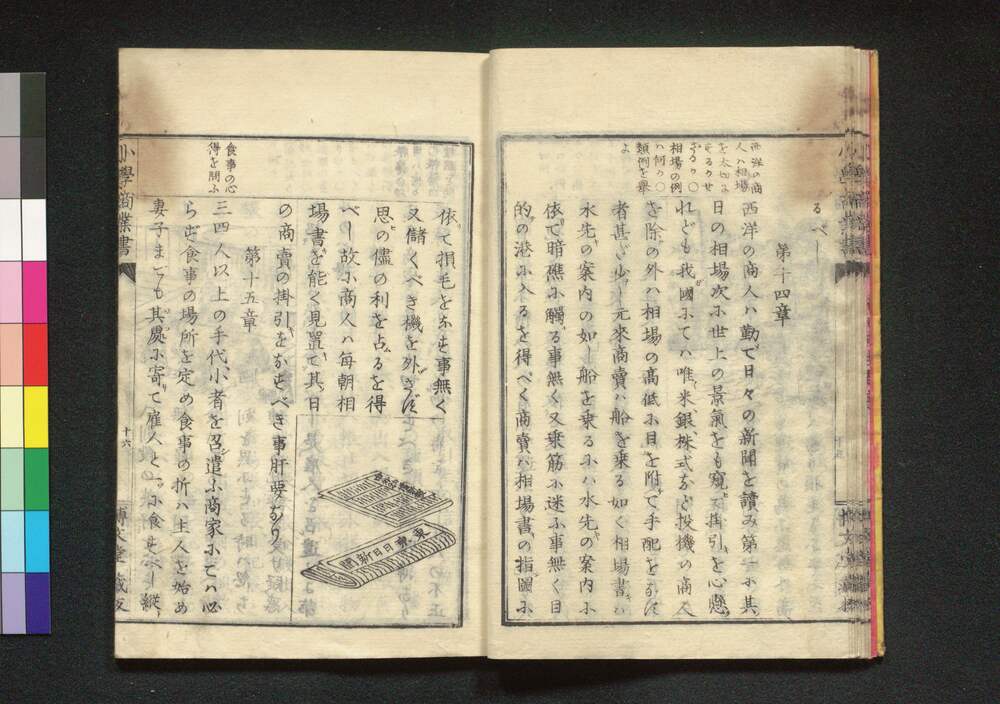 るべ
第十四章
西洋の商人ハ勤で日々の新聞を讀み第一ホ其
日の相場次ホ世上の景氣をも窺ひ掛引を心懸
れども我國ホてハ唯米銀株式など投機の商人
を除の外ハ相場の高低ホ目を附て手配をなす
者甚ざ少し元來商賣ハ船を乗る如く相場書ハ
水先の案内の如し船を乗るホハ水先の案内ホ
依て暗礁ホ觸る事無く又乗筋ホ迷ふ事無く目
的の港ホ入るを得べく商賣ハ相場書の指圖ホ
西洋の商
人ハ相場
を太切ホ
相場の例
ハ何り〇
類例を擧
よ
依て損毛をなす事無く
又儲くべき機を外さず
思の儘の利を占るを得
べし故ホ商人ハ毎朝相
場書を能く見置て其日
の商賣の掛引をなすべき事肝要なり
東京日日新聞
第十五章
三四人以上の手代小者を召遣ふ商家ホてハ必
らず食事の場所を定め食事の折ハ主人を始め
妻子までも其處ホ寄て雇人と一ホ食すべし縱
食事の心
得を問ふ
小學商業書
十六
博文堂藏版